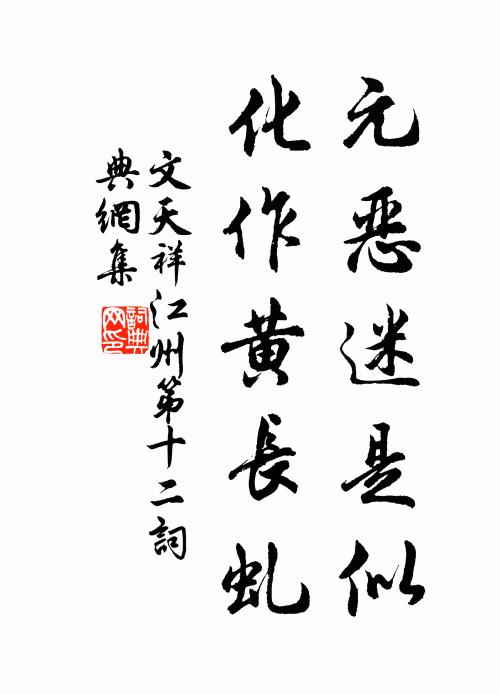 元惡迷是似
化作黃長虬
文天祥江州第十二詞
典網集
詞典网印